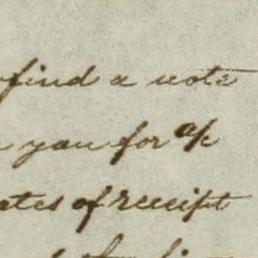 find a note
you for a/c
ates of receipt